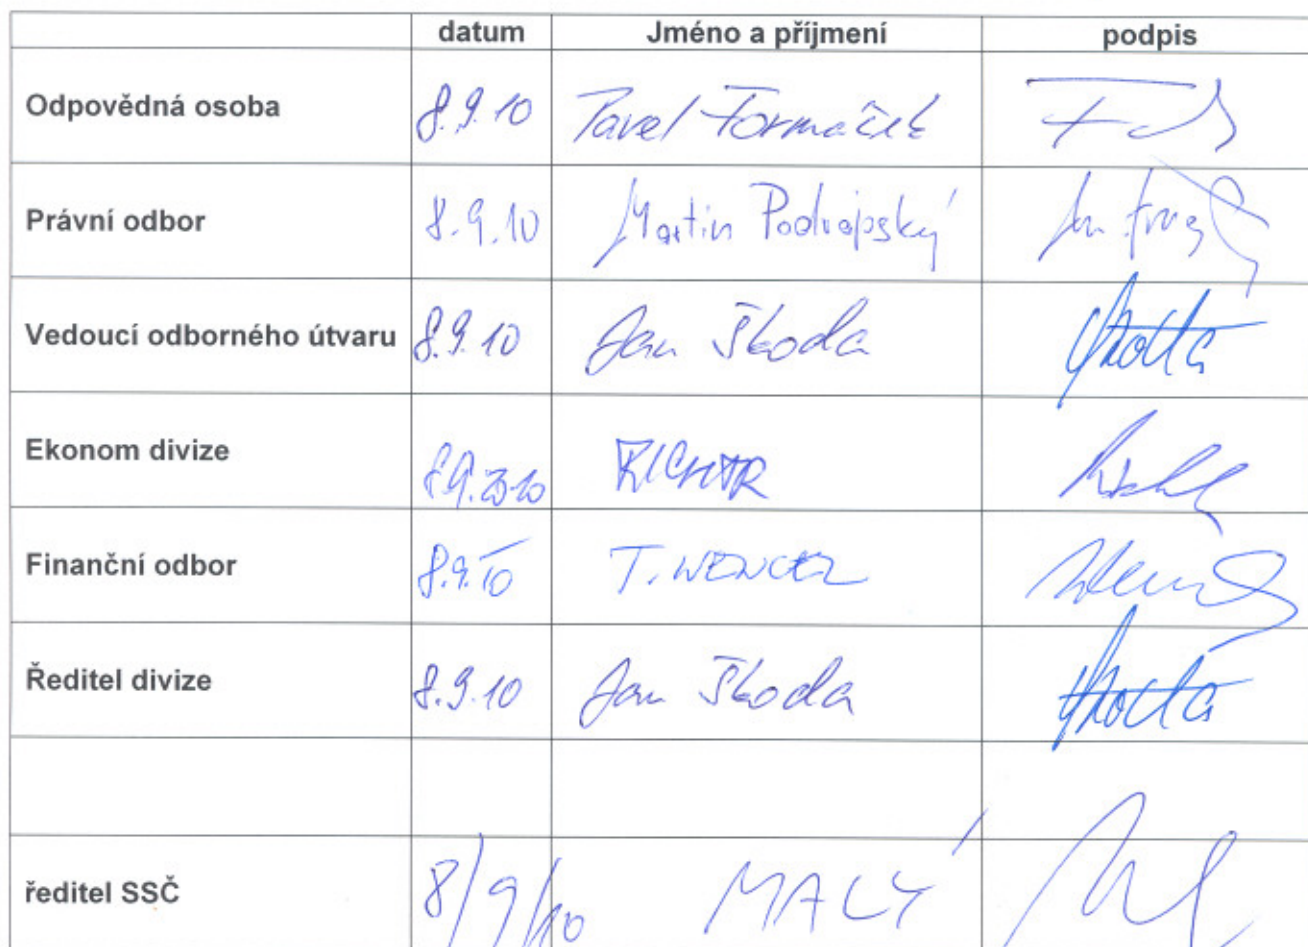 datum Jméno a příjmení podpis
Odpovědná osoba 8.9.10 Pavel Formáček
Právní odbor 8.9.10 Martin Podrápský
Vedoucí odborného útvaru 8.9.10 Jan Škoda
Ekonom divize 8.9.2010 RICHTR
Finanční odbor 8.9.10 T. WENCEL
Ředitel divize 8.9.10 Jan Škoda
ředitel SSČ 8/9/10 MALÝ